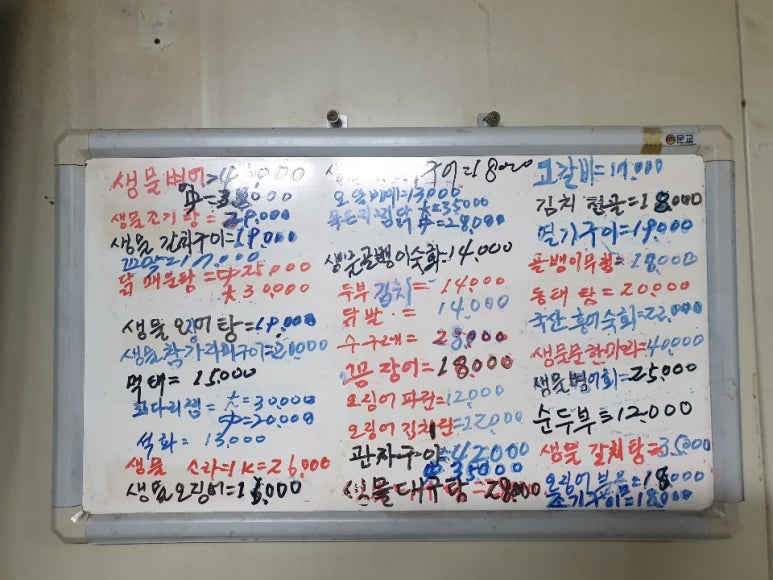 생물병어=43,000
中=38,000
생물조기탕=29,000
생물갈치구이=19,000
꼬막=17,000
닭매운탕=中25,000
大30,000
생물오징어탕=18,000
생물참가리비구이=20,000
먹태=15,000
코다리찜=大=30,000
中=20,000
석화=15,000
생물 소라=1K=26,000
생물오징어=18,000
구이=18000
=13,000
大=35000
中=28,000
생물골뱅이숙회=14,000
두부김치=14,000
닭발=14,000
수구레=28,000
꼼장어=18,000
오징어파전=12,000
오징어김치전=12,000
관자구이=42000
中35000
생물대구탕=28,000
고갈비=14,000
김치전골=18,000
열기구이=19,000
골뱅이무침=18,000
동태탕=20,000
국산홍어숙회=22,000
생물문어한마리=40000
생물병어회=25,000
순두부=12,000
생물갈치탕=35,000
오징어볶음=18,000
조기구이=18,000
문교